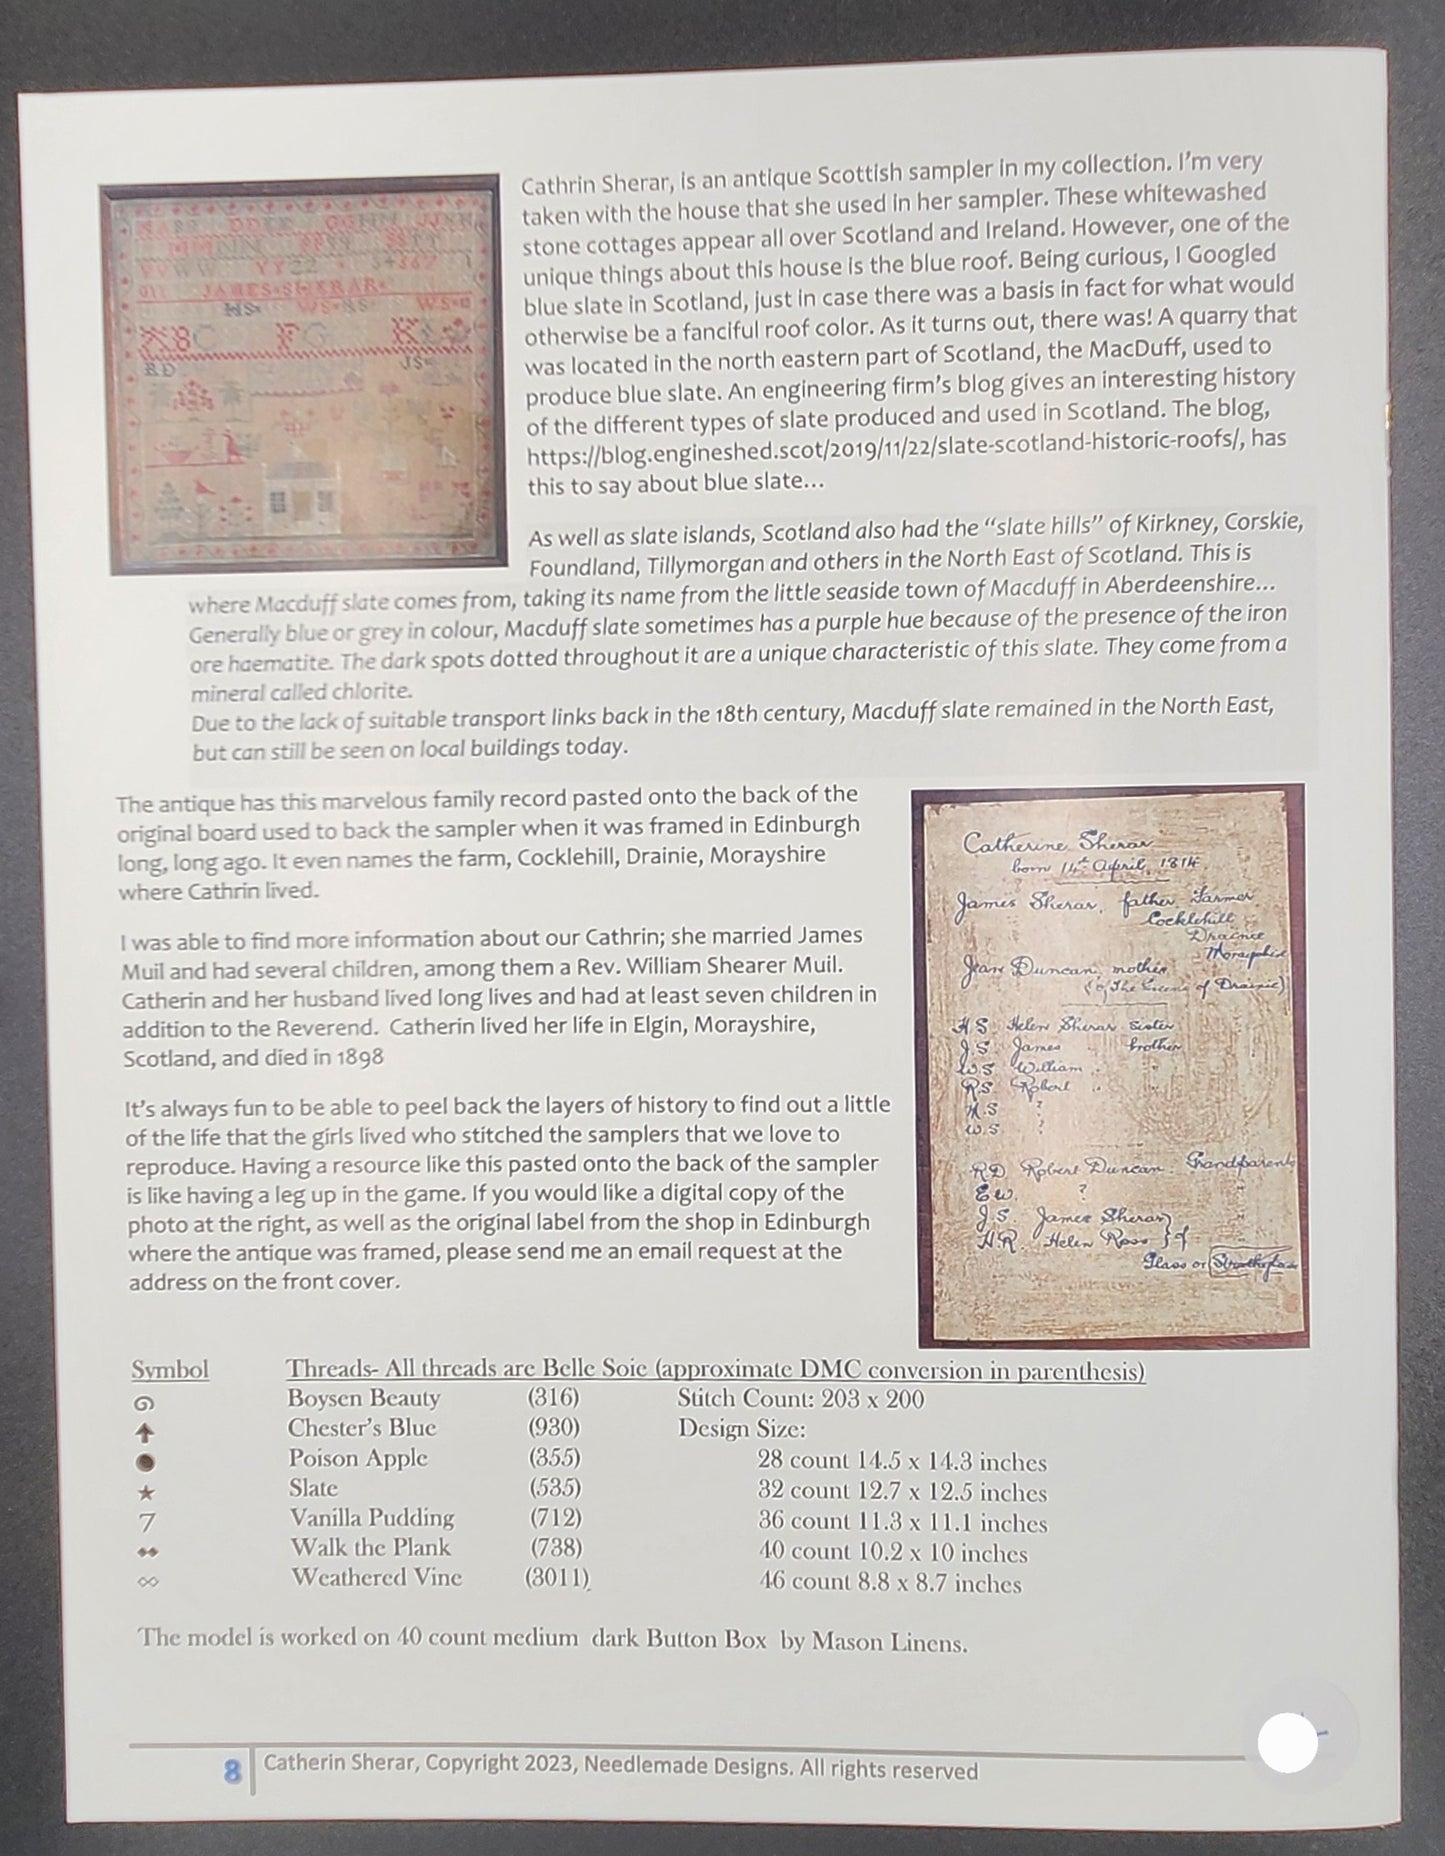 JAMES·SHERAR·
HS·
WS·
RD
JS
Cathrin Sherar, is an antique Scottish sampler in my collection. I'm very
taken with the house that she used in her sampler. These whitewashed
stone cottages appear all over Scotland and Ireland. However, one of the
unique things about this house is the blue roof. Being curious, I Googled
blue slate in Scotland, just in case there was a basis in fact for what would
otherwise be a fanciful roof color. As it turns out, there was! A quarry that
was located in the north eastern part of Scotland, the MacDuff, used to
produce blue slate. An engineering firm's blog gives an interesting history
of the different types of slate produced and used in Scotland. The blog,
https://blog.engineshed.scot/2019/11/22/slate-scotland-historic-roofs/, has
this to say about blue slate...
As well as slate islands, Scotland also had the "slate hills" of Kirkney, Corskie,
Foundland, Tillymorgan and others in the North East of Scotland. This is
where Macduff slate comes from, taking its name from the little seaside town of Macduff in Aberdeenshire...
Generally blue or grey in colour, Macduff slate sometimes has a purple hue because of the presence of the iron
ore haematite. The dark spots dotted throughout it are a unique characteristic of this slate. They come from a
mineral called chlorite.
Due to the lack of suitable transport links back in the 18th century, Macduff slate remained in the North East,
but can still be seen on local buildings today.
The antique has this marvelous family record pasted onto the back of the
original board used to back the sampler when it was framed in Edinburgh
long, long ago. It even names the farm, Cocklehill, Drainie, Morayshire
where Cathrin lived.
I was able to find more information about our Cathrin; she married James
Muil and had several children, among them a Rev. William Shearer Muil.
Catherin and her husband lived long lives and had at least seven children in
addition to the Reverend. Catherin lived her life in Elgin, Morayshire,
Scotland, and died in 1898
It's always fun to be able to peel back the layers of history to find out a little
of the life that the girls lived who stitched the samplers that we love to
reproduce. Having a resource like this pasted onto the back of the sampler
is like having a leg up in the game. If you would like a digital copy of the
photo at the right, as well as the original label from the shop in Edinburgh
where the antique was framed, please send me an email request at the
address on the front cover.
Catherine Sherar
born 14th April, 1814
James Sherar, father Farmer
Cocklehill
Drainie
Morayshire
Jean Duncan, mother
(of The Greens of Drainie)
H.S. Helen Sherar sister
J.S. James " brother
W.S. William "
R.S. Robert "
M.S ?
W.S ?
RD Robert Duncan. Grandparents
E.W. ?
J.S. James Sherar }
H.R. Helen Ross } of
Glass or
Symbol Threads- All threads are Belle Soie (approximate DMC conversion in parenthesis)
Boysen Beauty (316) Stitch Count: 203 x 200
Chester's Blue (930) Design Size:
Poison Apple (355) 28 count 14.5 x 14.3 inches
Slate (535) 32 count 12.7 x 12.5 inches
7 Vanilla Pudding (712) 36 count 11.3 x 11.1 inches
Walk the Plank (738) 40 count 10.2 x 10 inches
Weathered Vine (3011) 46 count 8.8 x 8.7 inches
The model is worked on 40 count medium dark Button Box by Mason Linens.
8 Catherin Sherar, Copyright 2023, Needlemade Designs. All rights reserved